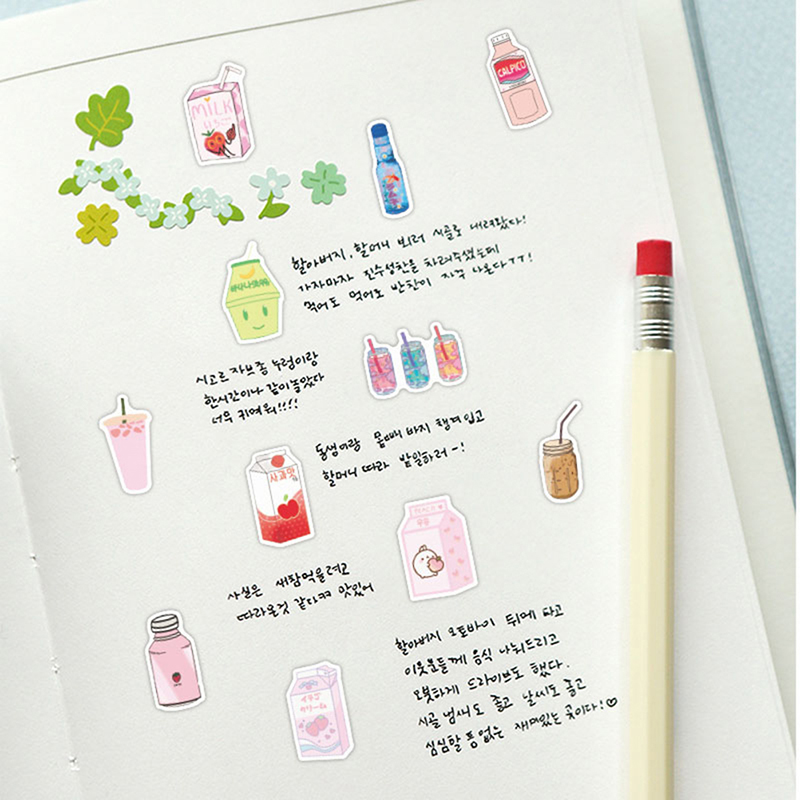 MILK
CALPICO
할아버지, 할머니 뵈러 시골로 내려왔다!
가자마자 진수성찬을 차려주셨는데
먹어도 먹어도 반찬이 자꾸 나온다ㅜㅜ!
바나나맛우유
시고르자브종 누렁이랑
한시간이나 같이놀았다
너무 귀여워!!!!
동생이랑 몸빼바지 챙겨입고
할머니 따라 밭일하러~!
사과맛
PEACH
우유
사실은 새참먹을려고
따라온것 같다ㅋㅋ 맛있어
할아버지 오토바이 뒤에 타고
이웃분들께 음식 나눠드리고
오붓하게 드라이브도 했다.
시골 냄새도 좋고 날씨도 좋고
심심할 틈 없는 재미있는 곳이다!♡
イチゴ